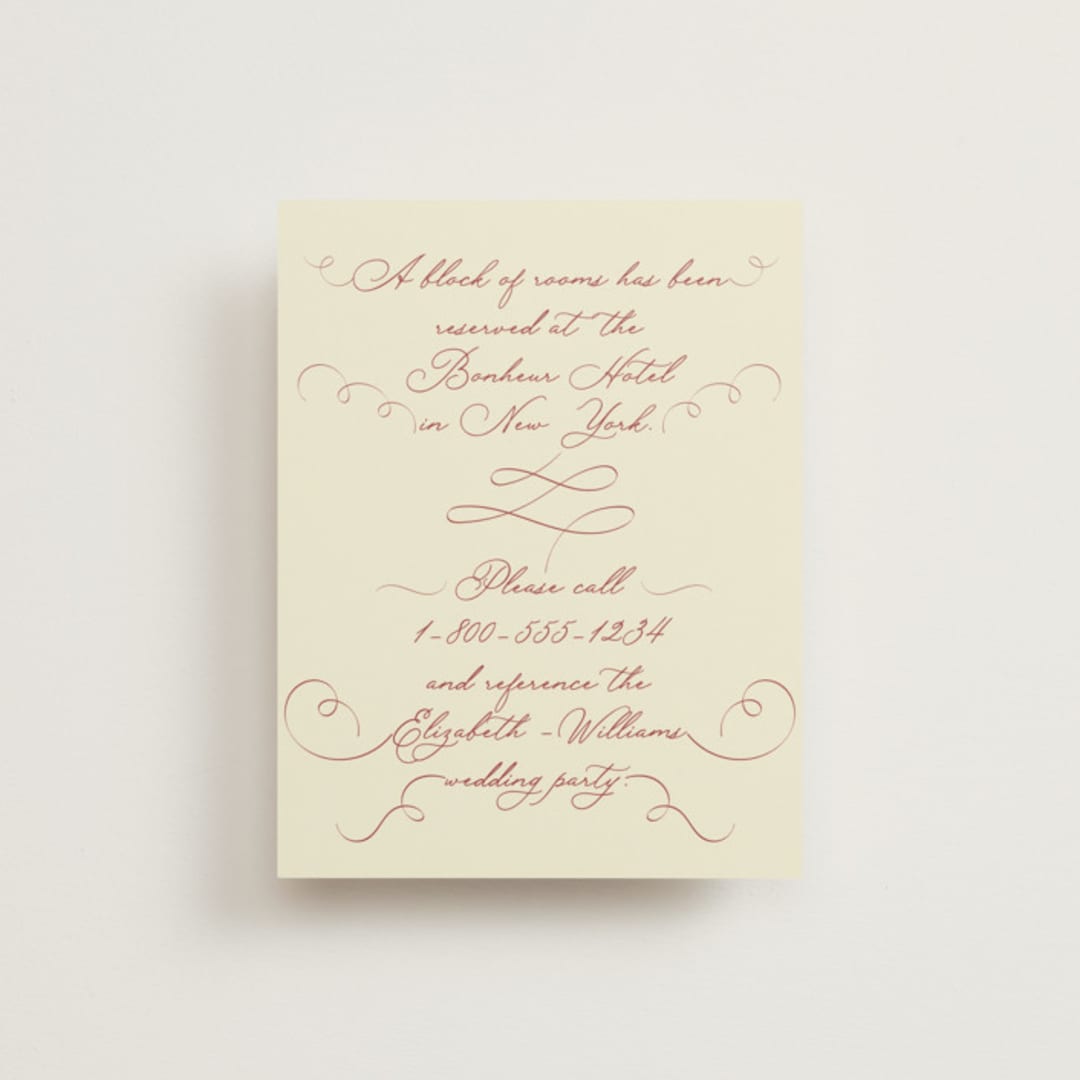 A block of rooms has been
reserved at the
Bonheur Hotel
in New York.
Please call
1-800-555-1234
and reference the
Elizabeth - Williams
wedding party.